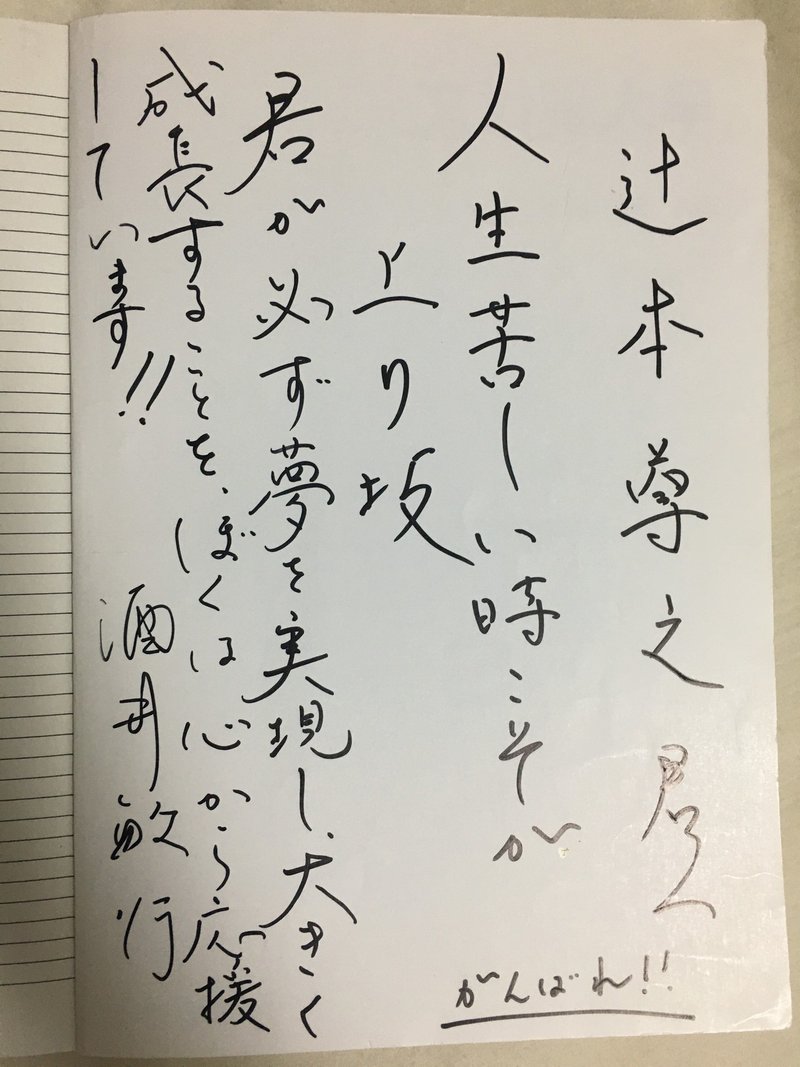 辻本導之君へ
人生苦しい時こそが
上り坂
君が必ず夢を実現し、大きく
成長することを、ぼくは心から応援
しています!!
酒井敏行
がんばれ!!